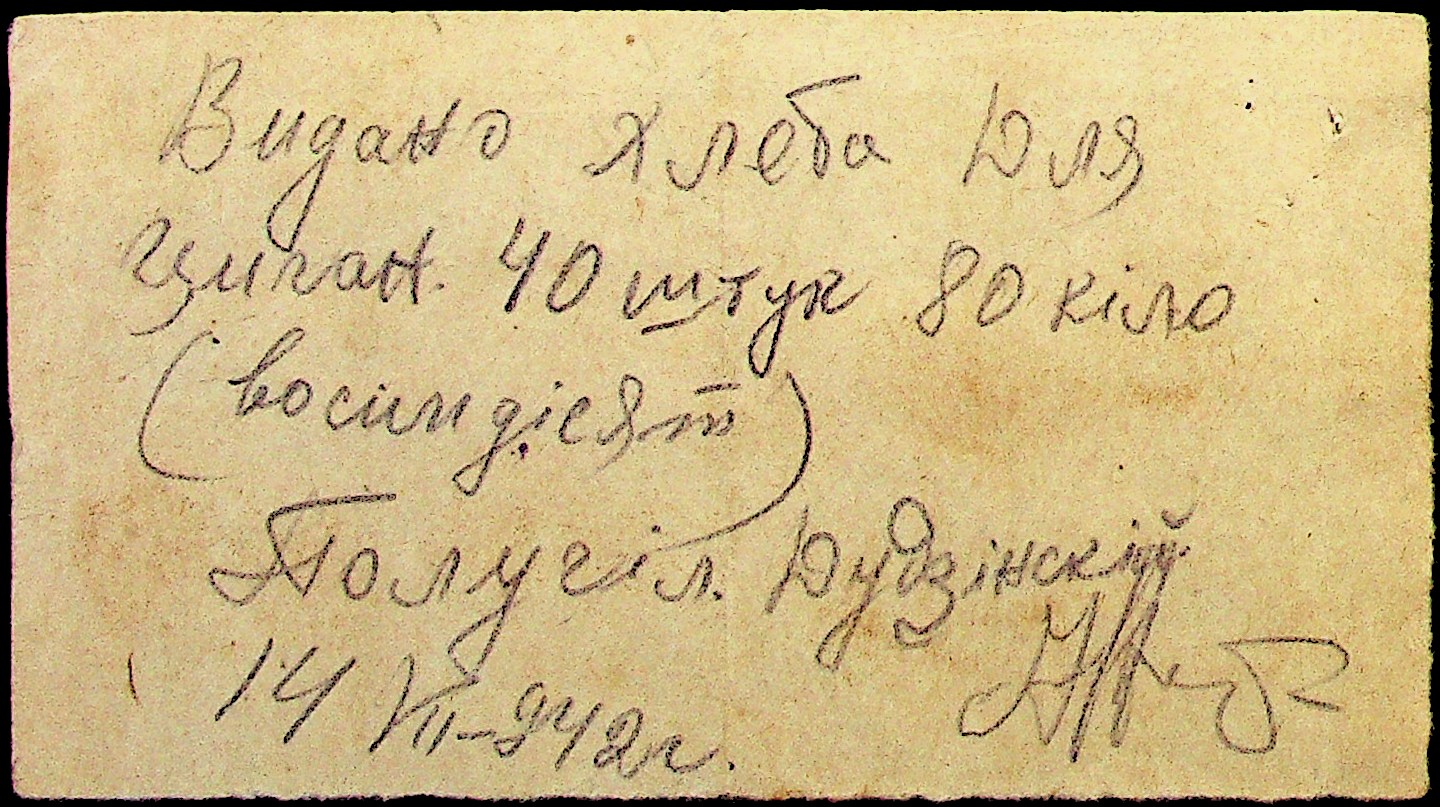 Видано хлеба Для
циган. 40 штук 80 кіло
(восимдісят)
Получіл. Дудзінскій
14 VII-942г.